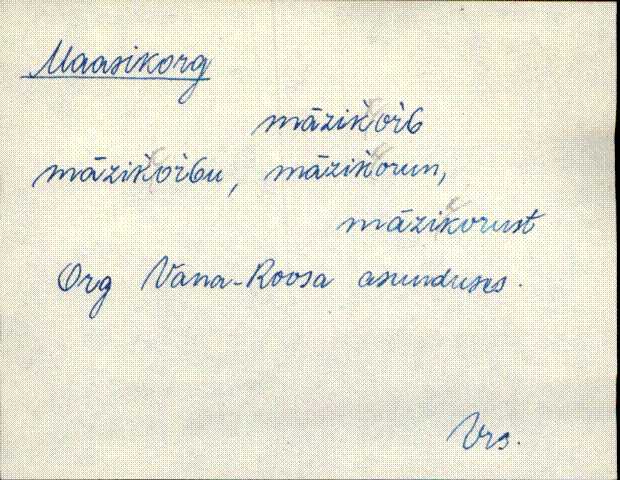 Maasikorg
māzikoŕG
māzikoŕGu, māzikorun,
māzikorust
Org Vana-Roosa asunduses.
Vrs.